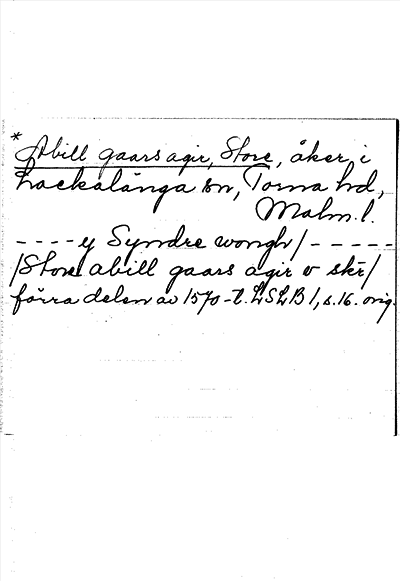 * Abill gaars agir, Store, åker, i
Lackalänga sn, Torna hd,
Malm. l.
- - - - y Syndre wongh / - - - - -
/ Store abill gaars agir v skr /
förra delen av 1570-t. LSLB 1, s. 16. orig.